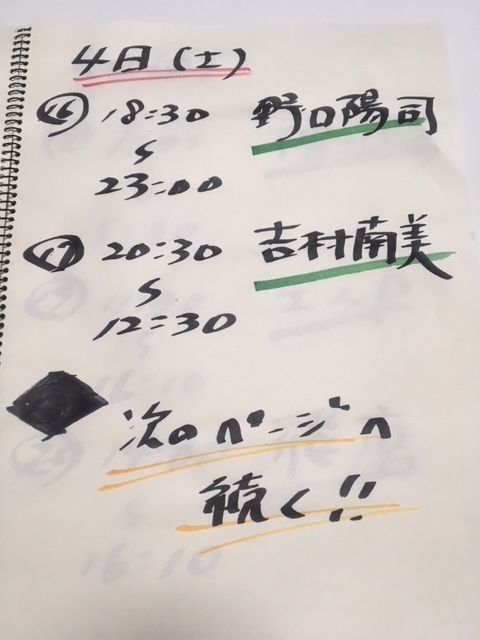 4日(土)
⑯ 18:30 野口陽司
〜
23:00
⑰ 20:30 吉村南美
〜
12:30
次のページへ
続く!!